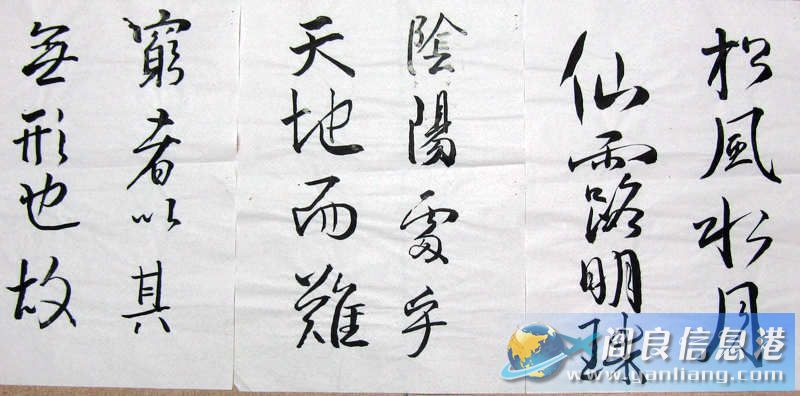 松風水月
仙露明珠
陰陽處乎
天地而難
窮者以其
無形也故
阎良信息港
www.yanliang.com